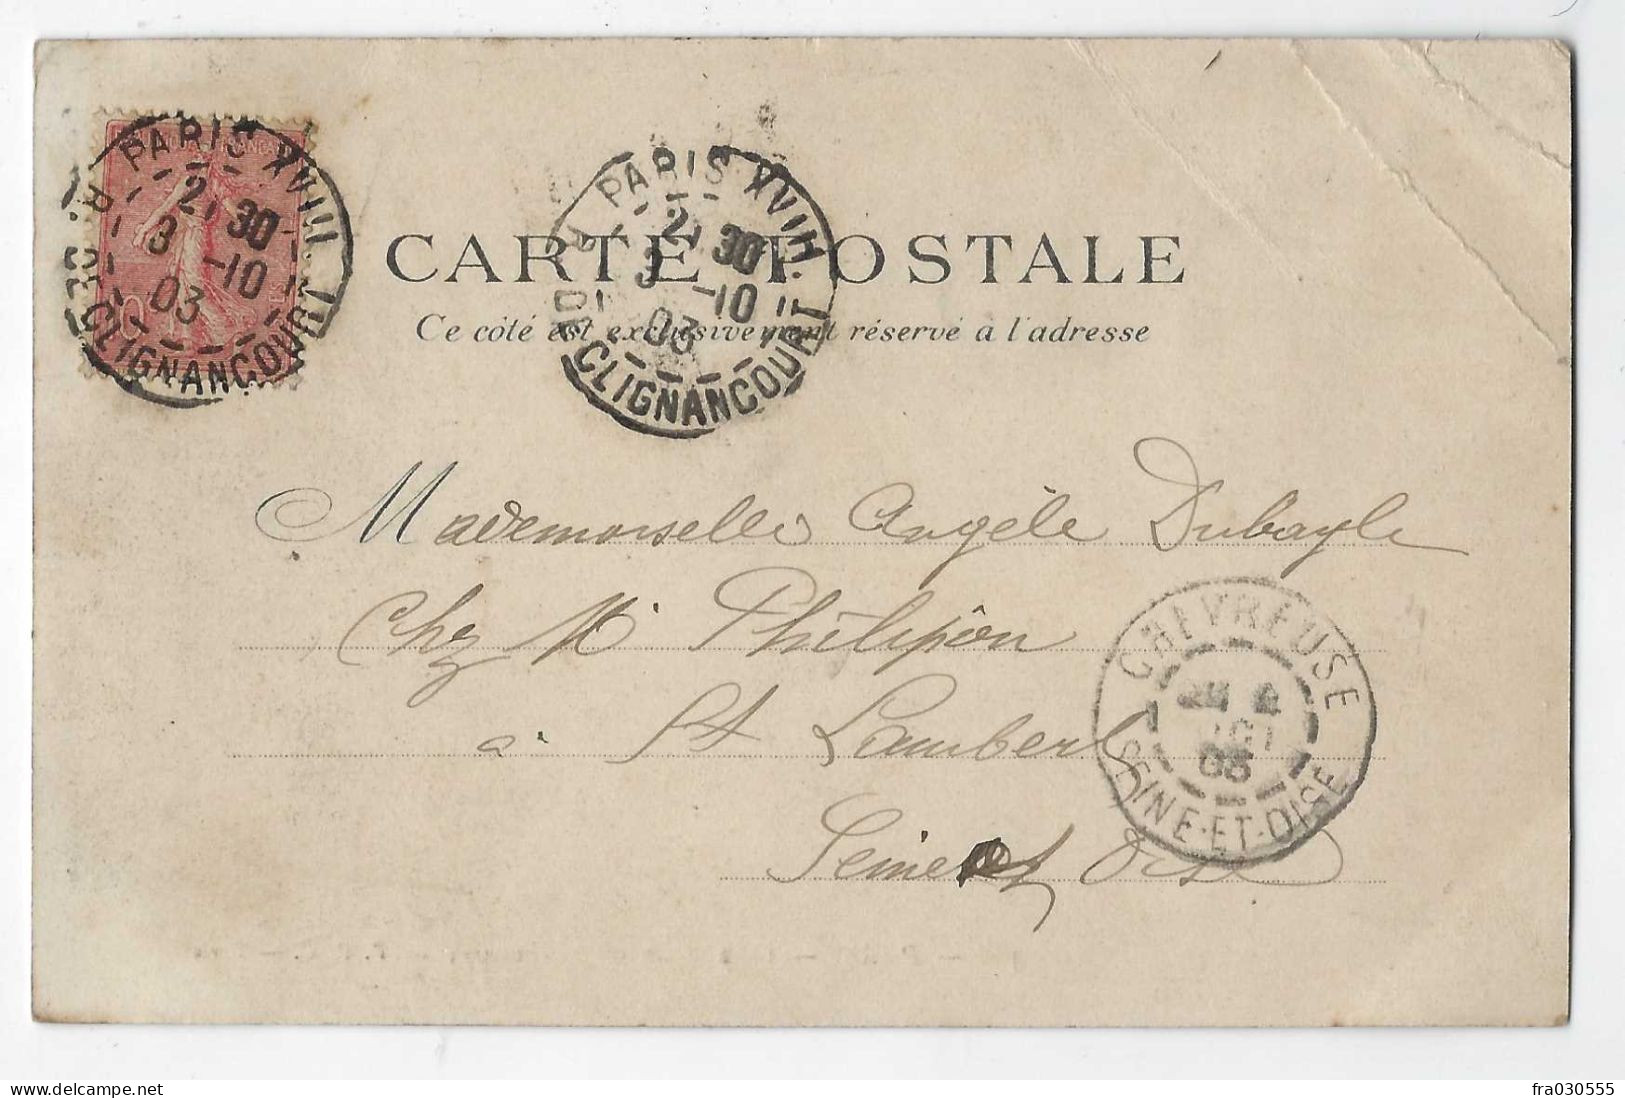 PARIS XVIII
2,30
3 -10
03
R. DE CLIGNANCOURT
PARIS XVIII
2,30
3 -10
03
R. DE CLIGNANCOURT
CARTE POSTALE
Ce côté est exclusivement réservé à l'adresse
Mademoiselle Angèle Dubayle
Chez M. Philipôn
à St Lambert
Seine et Oise
CHEVREUSE
03
SEINE-ET-OISE
www.delcampe.net
fra030555